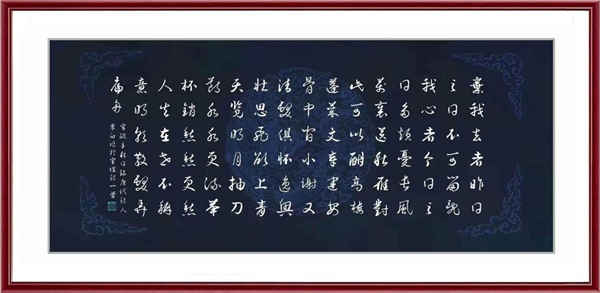 棄我去者昨日
之日不可留亂
我心者今日之
日多煩憂長風
萬裏送秋雁對
此可以酣高樓
蓬萊文章建安
骨中间小謝又
清發俱懷逸興
壯思飛欲上青
天覽明月抽刀
斷水水更流舉
杯銷愁愁更愁
人生在世不稱
意明朝散發弄
扁舟
唐代詩人
李白詩一首